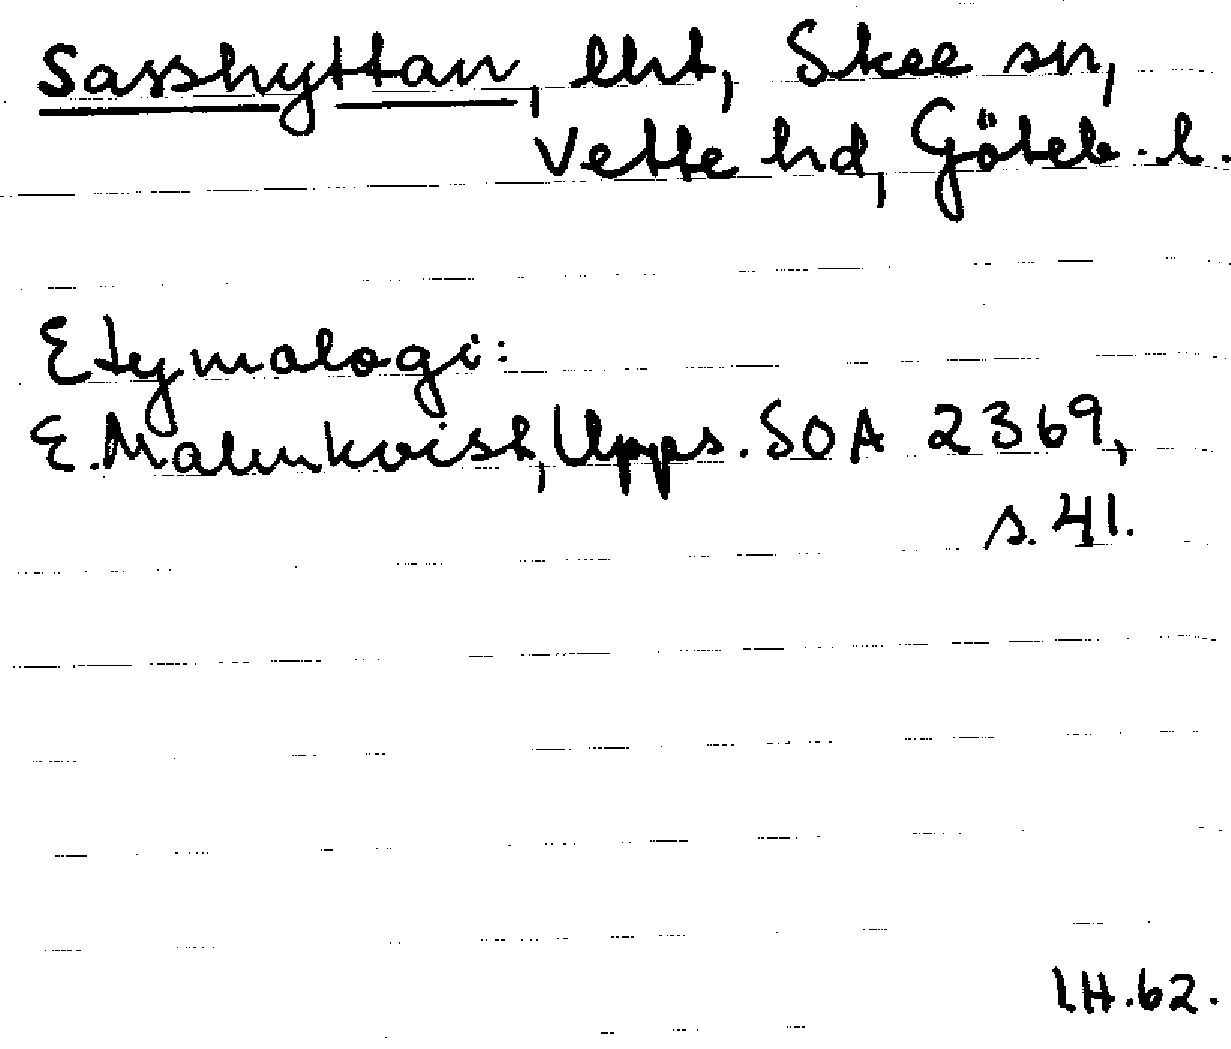 Sasshyttan, lht, Skee sn,
Vette hd, Göteb. l.
Etymologi:
E. Malmkvist, Upps. SOA 2369,
s. 41.
IH. 62.